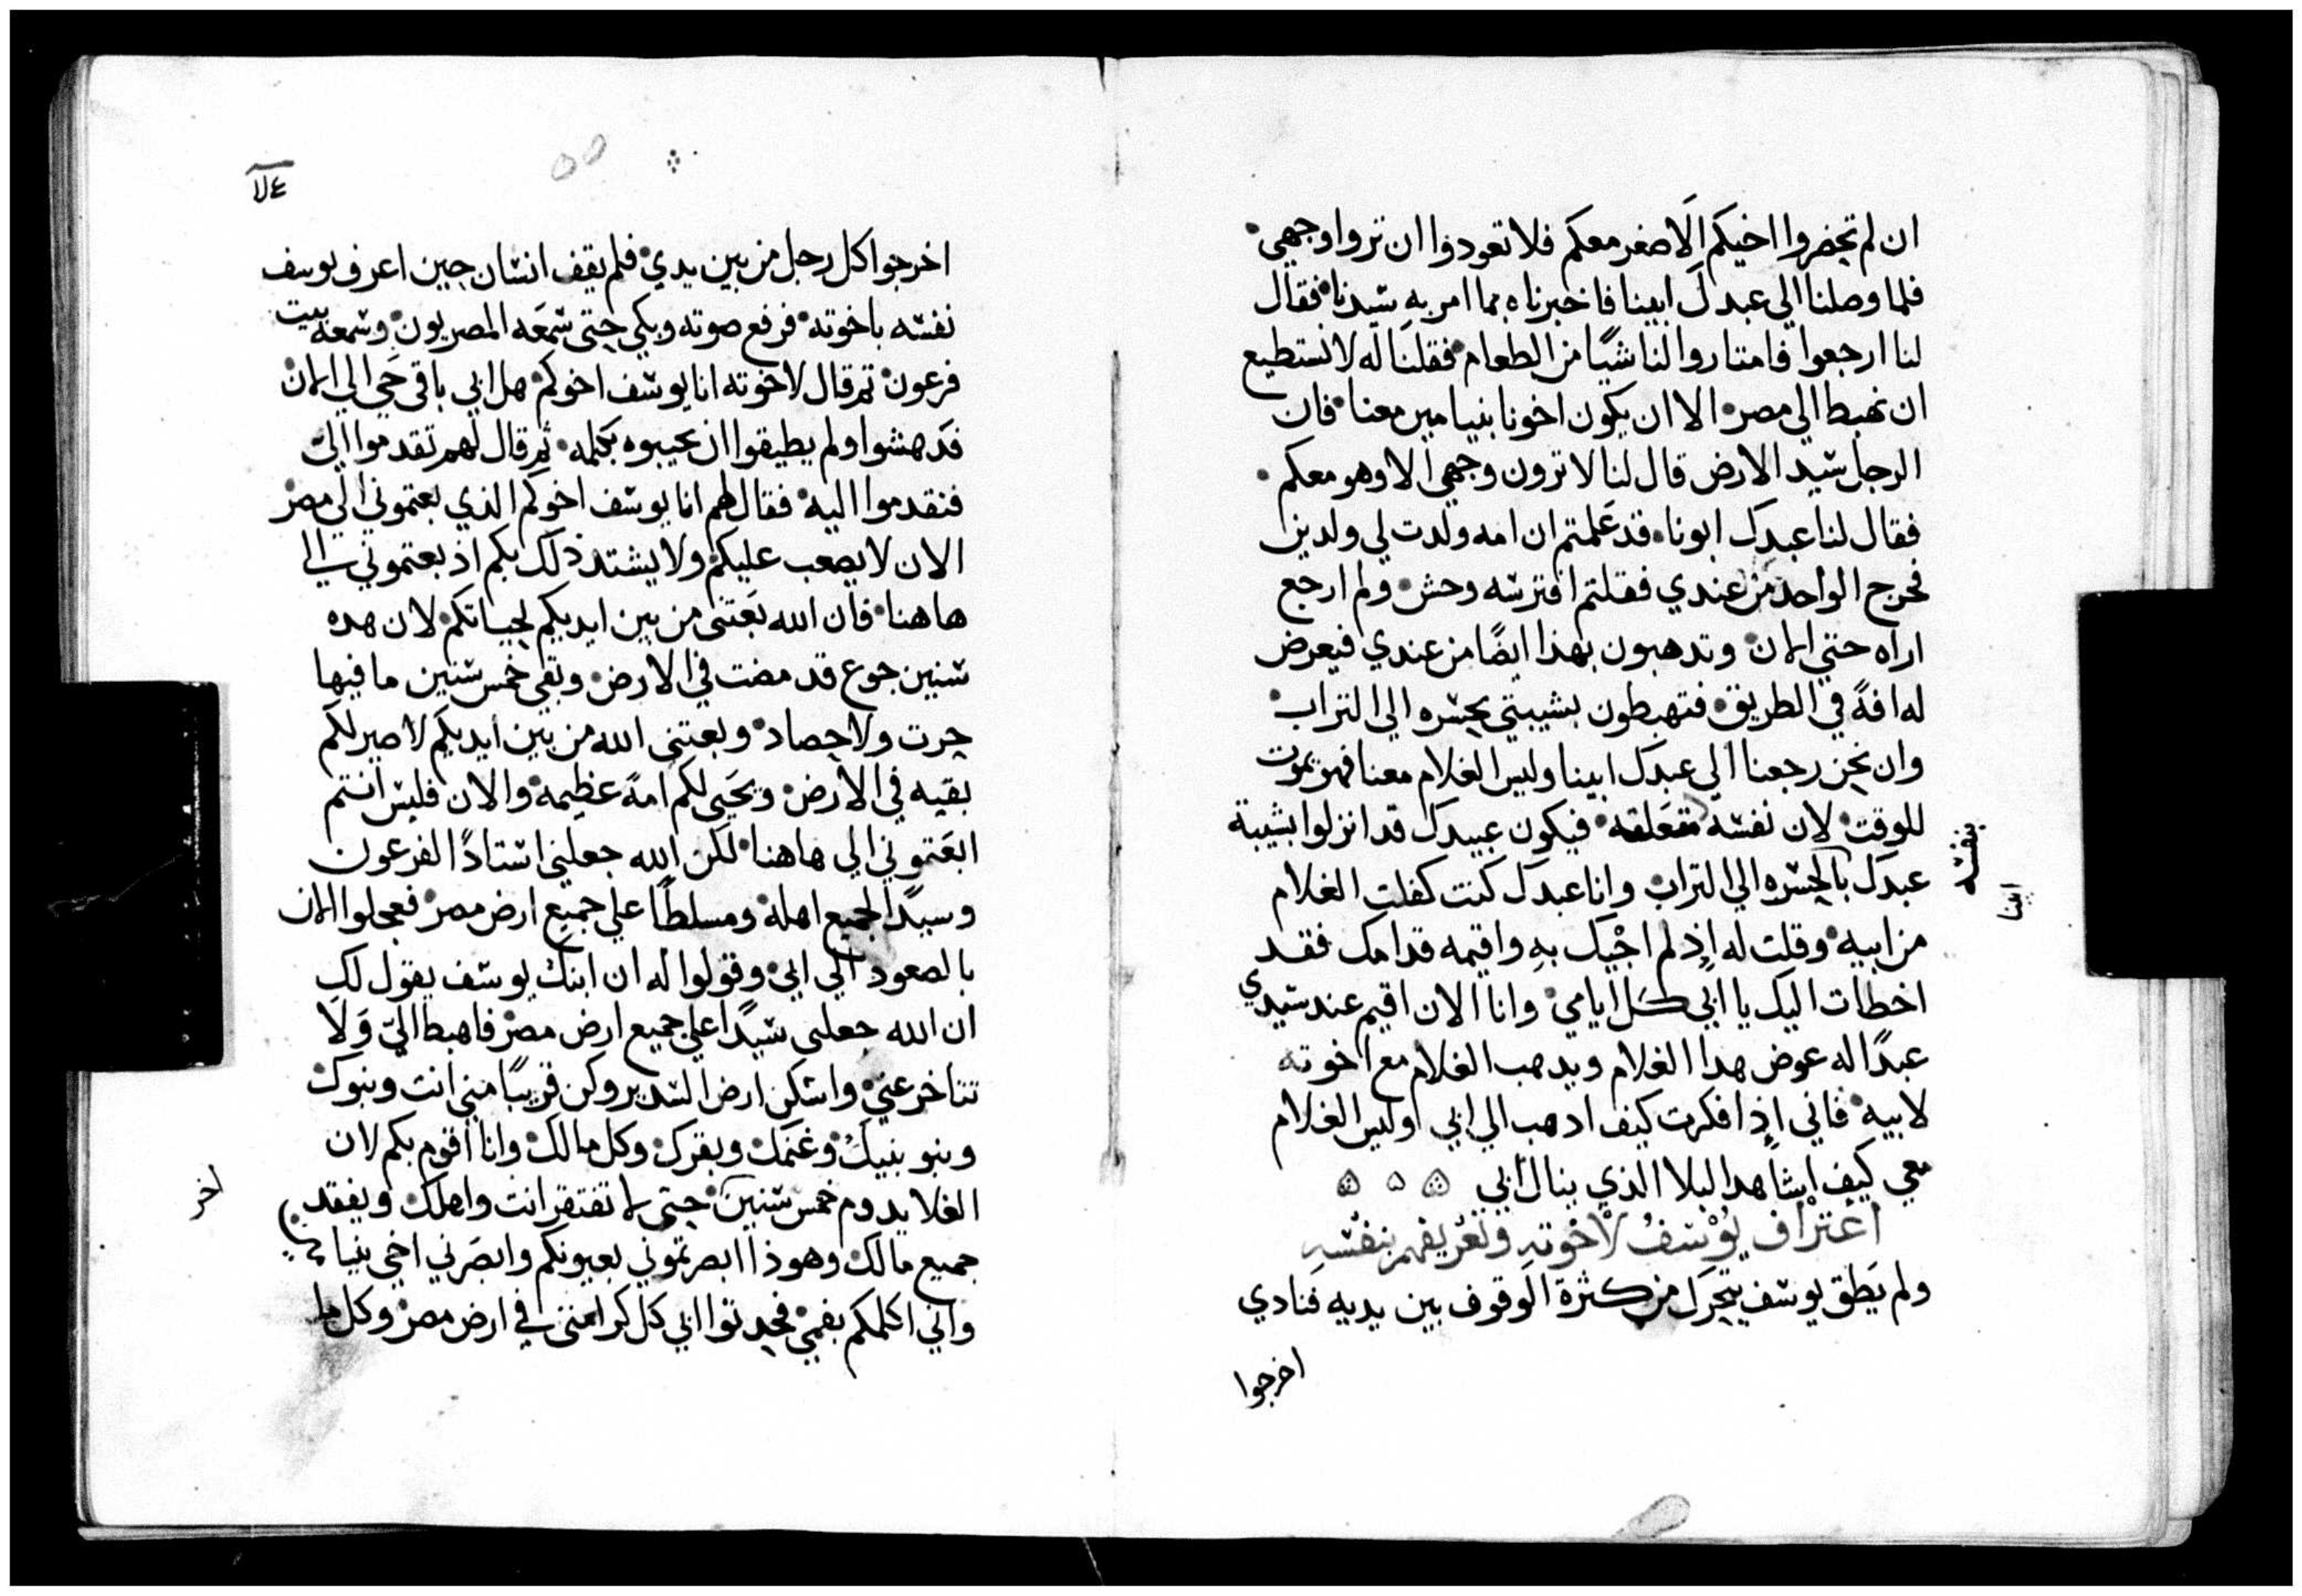 ان لم تحضروا اخيكم الاصغر معكم فلا تعودوا ان تروا وجهي
فلما وصلنا الي عبدك ابينا فاخبرناه بما امر به سيدنا فقال
لنا ارجعوا فامتاروا لنا شيًا من الطعام فقلنا له لا نستطيع
ان نهبط الي مصر الا ان يكون اخونا بنيامين معنا فان
الرجل سيد الارض قال لنا لا ترون وجهي الا وهو معكم
فقال لنا عبدك ابونا قد علمتم ان امه ولدت لي ولدين
فخرج الواحد من عندي فقلتم افترسه وحش ولم ارجع
اراه حتي الان وتدهبون بهذا ايضًا من عندي فيعرض
له افةً في الطريق فتهبطون بشيبتي بحسره الي التراب
وان نحن رجعنا الي عبدك ابينا وليس الغلام معنا فهو يموت
للوقت لان نفسه متعلقه فيكون عبيدك قد انزلوا بشيبة
بنفسه
عبدك بالحسره الي التراب وانا عبدك كنت كفلت الغلام
ابينا
من ابيه وقلت له اذ لم اجيك به واقيمه قدامك فقد
اخطات اليك يا ابي كل ايامي وانا الان اقيم عند سيدي
عبدًا له عوض هدا الغلام ويدهب الغلام مع اخوته
لابيه فاني اذا فكرت كيف ادهب الي ابي وليس الغلام
معي كيف اشاهد البلا الذي ينال ابي
اعتراف يوسف لاخوته وتعريفهم بنفسه
ولم يطق يوسف يتحرك من كثرة الوقوف بين يديه فنادي
اخرجوا
اخرجوا كل رجل من بين يدي فلم يقف انسان حين اعرف يوسف
نفسه باخوته فرفع صوته وبكي حتي سمعه المصريون وسمعه بيت
فرعون ثم قال لاخوته انا يوسف اخوكم هل ابي باقي حي الي الان
فدهشوا ولم يطيقوا ان يجيبوه بكلمه ثم قال لهم تقدموا الي
فتقدموا اليه فقال لهم انا يوسف اخوكم الذي بعتموني الي مصر
الان لا يصعب عليكم ولا يشتد ذلك بكم اذ بعتموني الي
هاهنا فان الله بعتني من بين ايديكم لحياتكم لان هده
سنين جوع قد مضت في الارض وبقي خمس سنين ما فيها
حرت ولا حصاد وبعتني الله من بين ايديكم لاصير لكم
بقيه في الارض ويحيي لكم امةً عظيمه والان فليس انتم
ابعتموني الي هاهنا لكن الله جعلني استادًا لفرعون
وسيدًا لجميع اهله ومسلطًا علي جميع ارض مصر فعجلوا الان
بالصعود الي ابي وقولوا له ان ابنك يوسف يقول لك
ان الله جعلني سيدًا علي جميع ارض مصر فاهبط الي ولا
تتاخر عني واسكن ارض السدير وكن قريبًا مني انت وبنوك
وبنو بنيك وغنمك وبقرك وكل مالك وانا اقوم بكم لان
الغلا يدوم خمس سنين حتي لا تفتقر انت واهلك ويفقد
اخر
جميع مالك وهوذا ابصرتموني بعيونكم وابصرني اخي بنيامين
واني اكلمكم بفمي فحدثوا ابي كل كرامتي في ارض مصر وكل ما